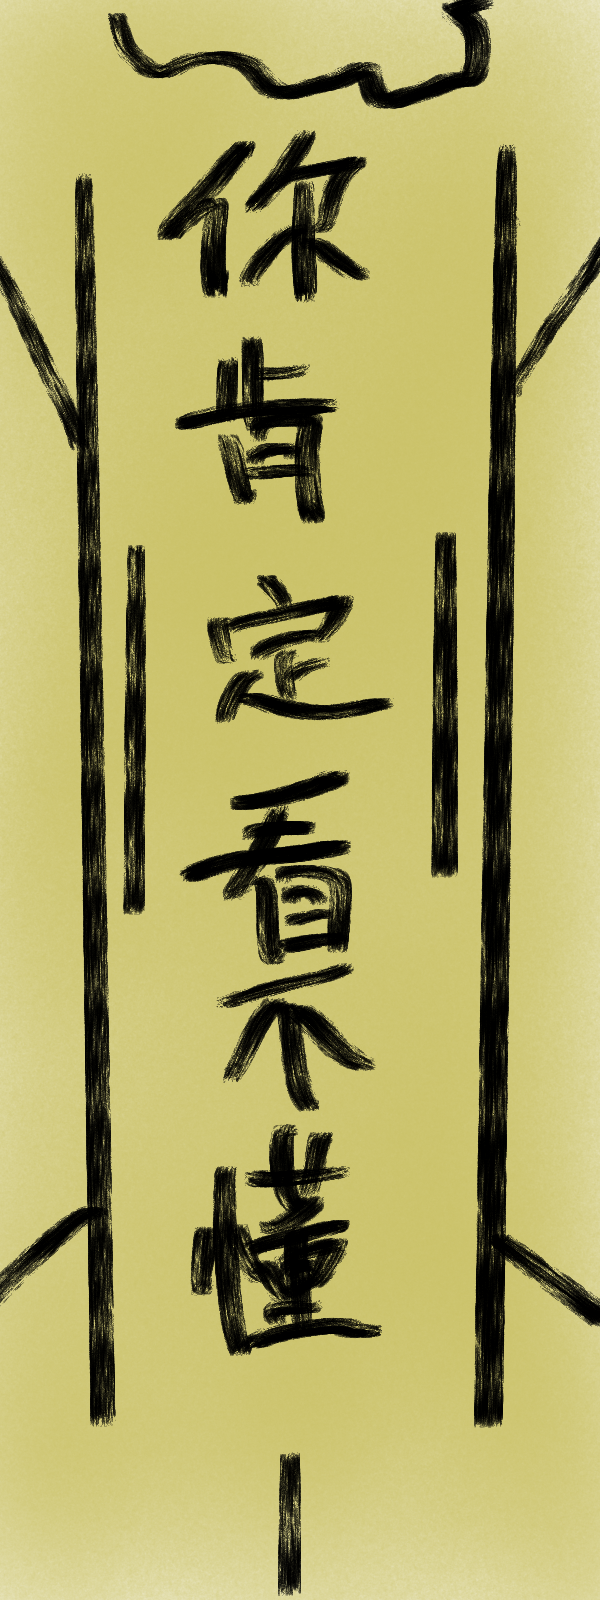 你肯定看不懂